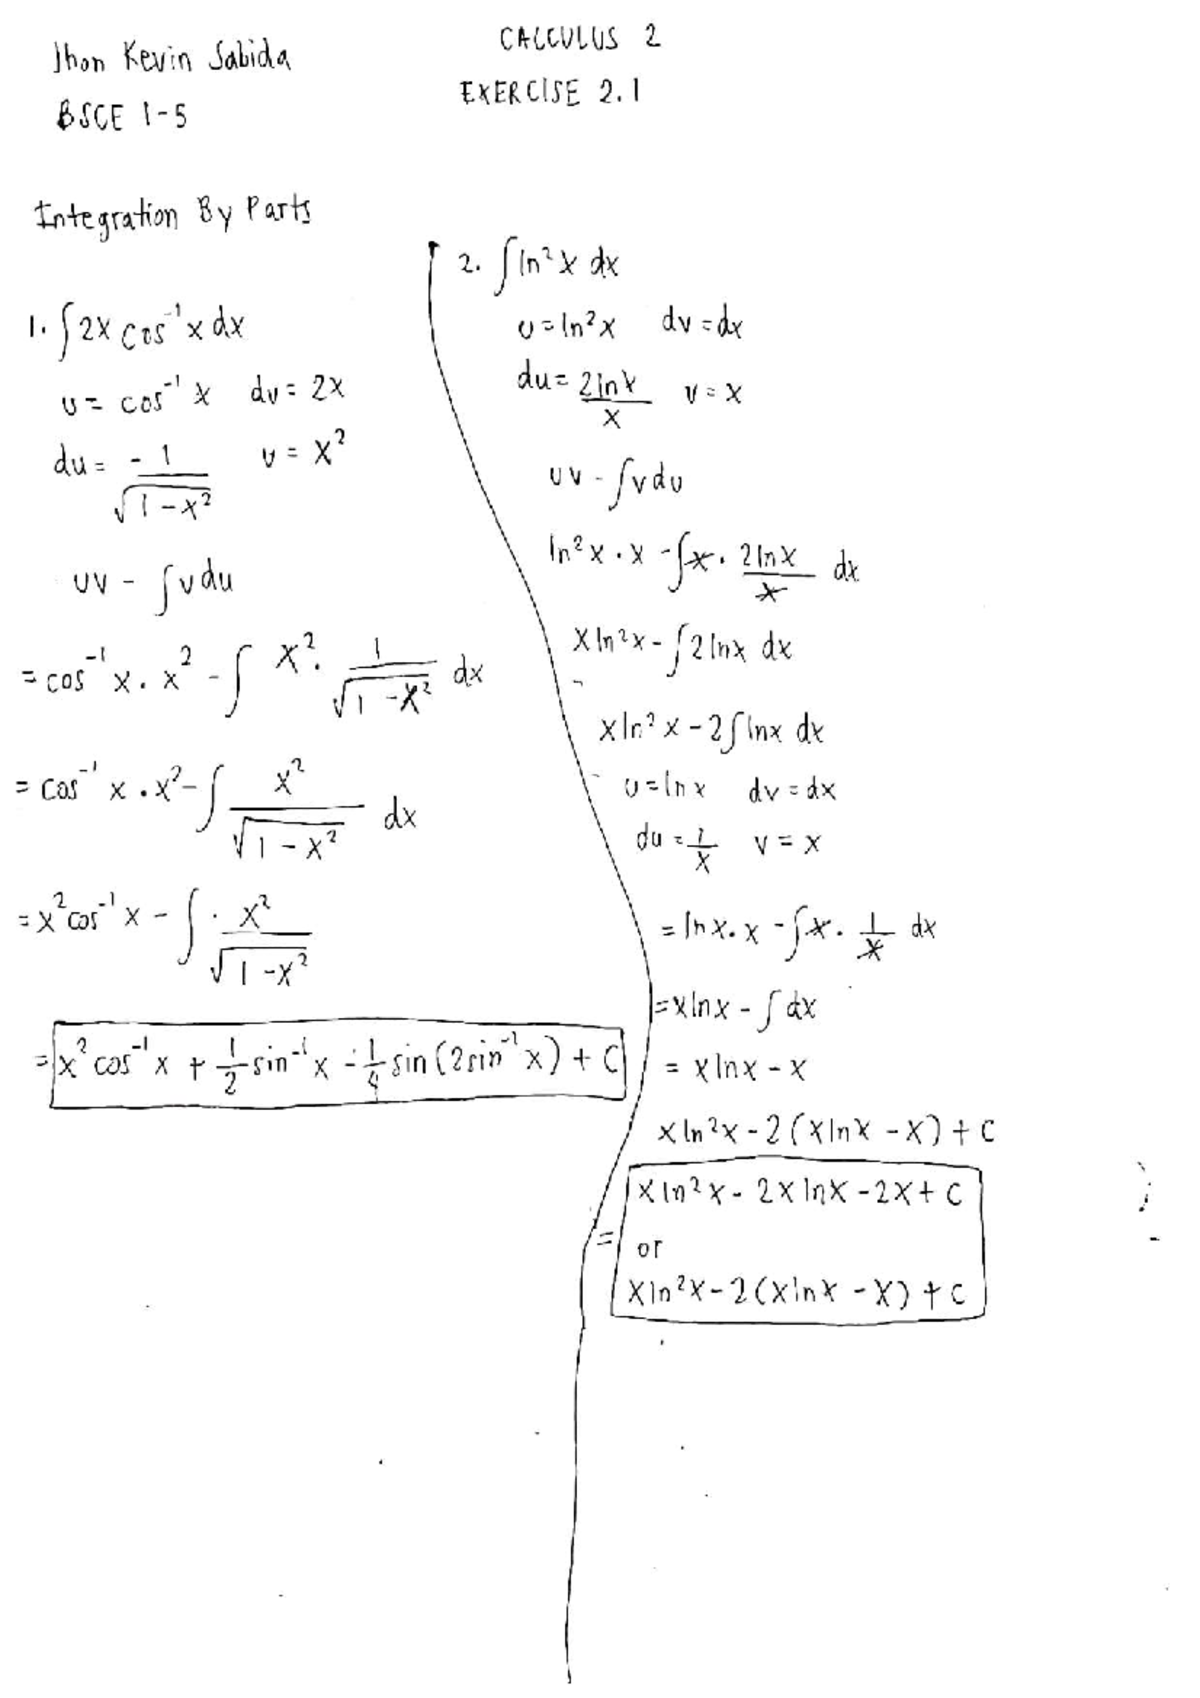 Jhon Kevin Sabida
BSCE 1-5
CALCULUS 2
EXERCISE 2.1
Integration By Parts
1. ∫2x cos⁻¹x dx
u = cos⁻¹ x dv = 2x
du = -1/√(1-x²) v = x²
uv - ∫vdu
= cos⁻¹ x . x² - ∫ x² . 1/√(1-x²) dx
= cos⁻¹ x . x² - ∫ x²/√(1-x²) dx
= x²cos⁻¹ x - ∫ . x²/√(1-x²)
= x²cos⁻¹x + 1/2 sin⁻¹x - 1/4 sin(2sin⁻¹x) + C
2. ∫ln²x dx
u = ln²x dv = dx
du = 2lnx/x v = x
uv - ∫vdu
ln²x . x - ∫x . 2lnx/x dx
xln²x - ∫2lnx dx
xln²x - 2∫lnx dx
u = lnx dv = dx
du = 1/x v = x
= lnx . x - ∫x . 1/x dx
= xlnx - ∫dx
= xlnx - x
xln²x - 2(xlnx - x) + C
= xln²x - 2xlnx - 2x + C
or
xln²x - 2(xlnx - x) + C